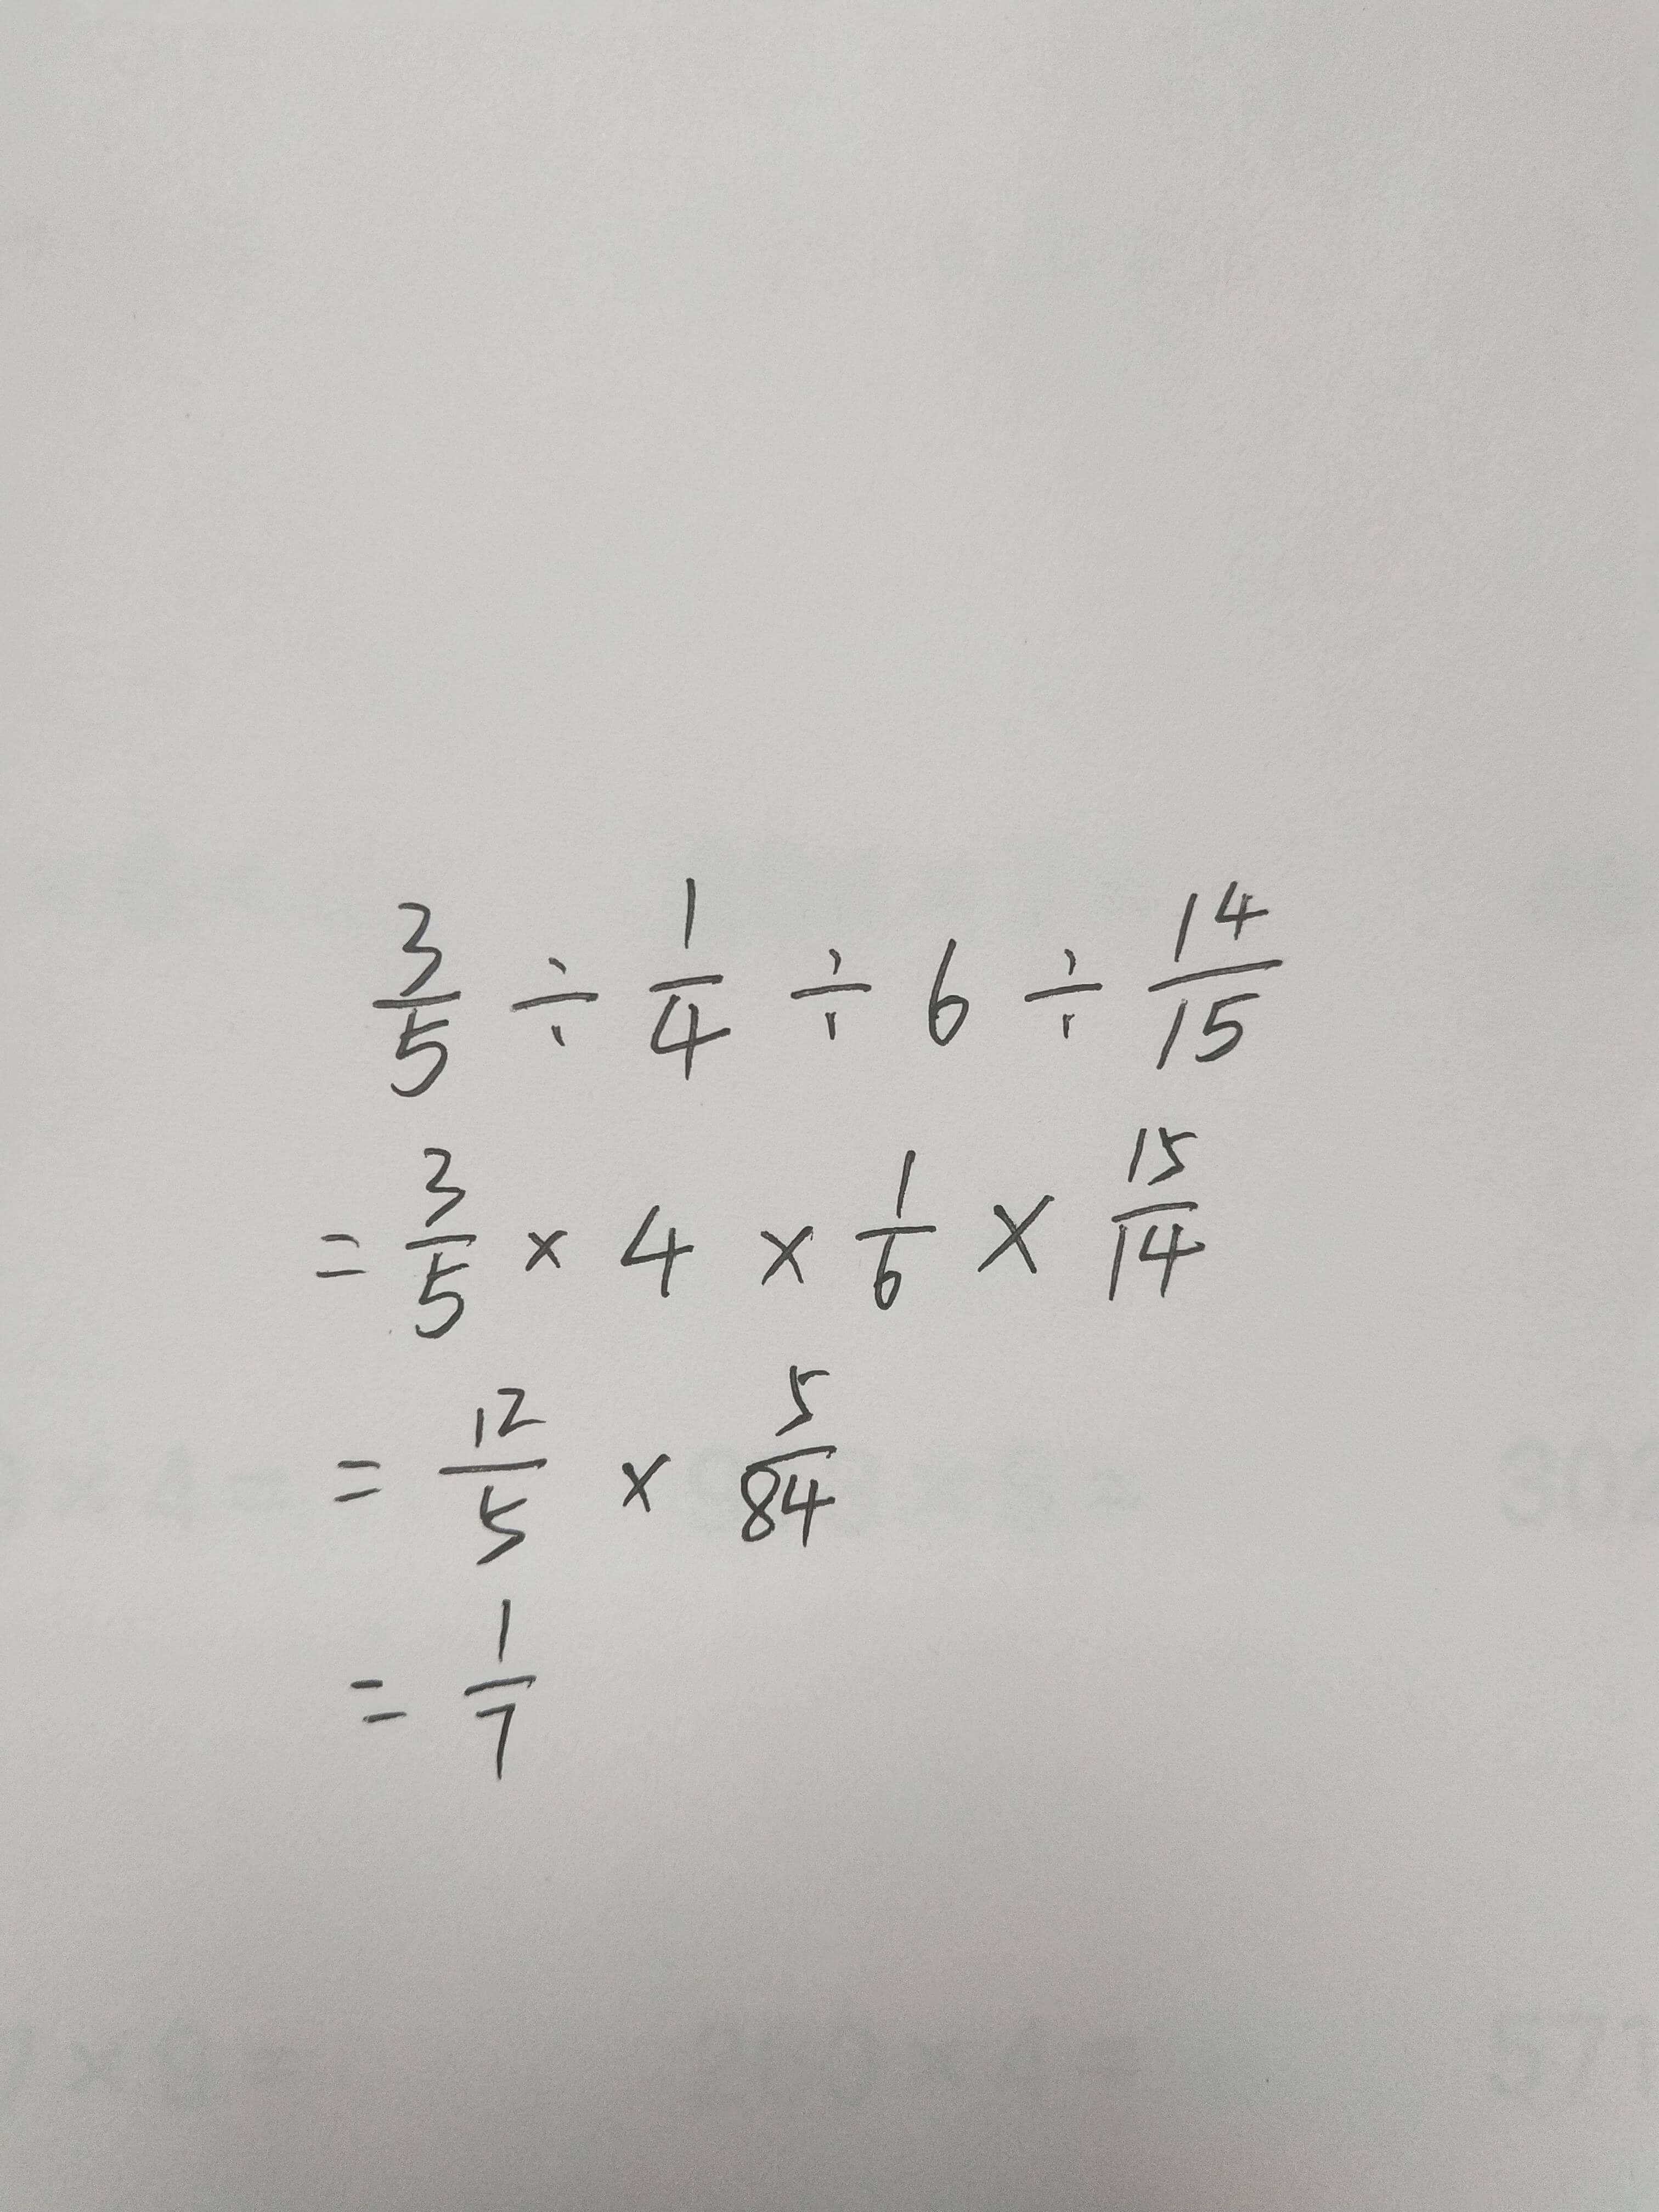 3/5 ÷ 1/4 ÷ 6 ÷ 14/15
= 3/5 × 4 × 1/6 × 15/14
= 12/5 × 5/84
= 1/7